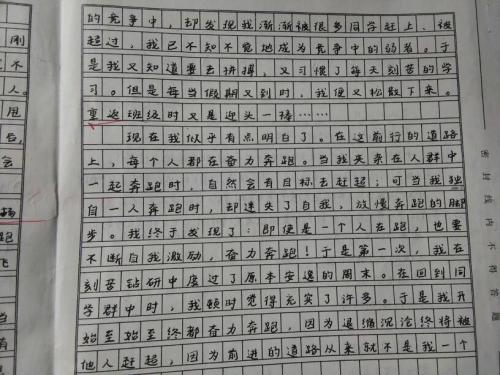 的竞争中，却发现我渐渐被很多同学赶上、被
超过，我已不知不觉地成为竞争中的弱者。于
是我又知道要去拼搏，又习惯了每天刻苦的学
习。但是每当假期又到时，我便又松散下来。
重返班级时又是迎头一棒……
现在我似乎有点明白了。在这前行的道路
上，每个人都在奋力奔跑。当我夹杂在人群中
一起奔跑时，自然会有目标去赶超；可当我独
自一人奔跑时，却迷失了自我，放慢奔跑的脚
步。我终于发现了：即便是一个人在跑，也要
不断自我激励，奋力奔跑！于是第一次，我在
刻苦钻研中度过了原本安逸的周末。在回到同
学群中时，我顿时觉得充实了许多。于是我开
始至始至终都奋力奔跑，因为退缩沉沦终将被
他人赶超，因为前进的道路从来就不是我一个
刚
不
人。
甩
后，
会
跑
飞
当
密封线内不得答题